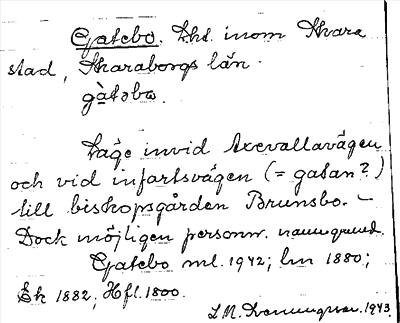 Gatebo. Lht. inom Skara
stad, Skaraborgs län.
gàtəbω.
Läge invid Axevallavägen
och vid infartsvägen (= gatan?)
till biskopsgården Brunsbo. –
Dock möjligen personn. namngrund.
Gatebo ml. 1942; hn 1880;
Ek 1882; Hfl. 1800.
1943.